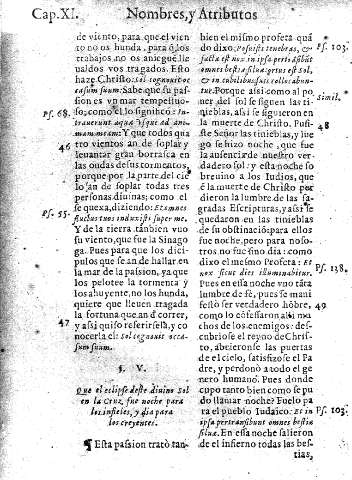 Cap.XI. Nombres, y Atributos
de viento, para que el vien
to no os hunda, para q̃ los
trabajos no os aniegue llegue
naldos vos tragados. Esto
haze Christo: Sol cognouit oc-
casum suum: Sabe que su pas-
sion es vn mar tempestuo-
so; como el lo significò: In-
trauerunt aquæ vsque ad ani-
mam meam: Y que todos qua
tro vientos an de soplar y
leuantar gran borrasca en
las ondas de sus tormentos,
porque por la parte del cie
lo an de soplar todas tres
personas, diuinas; como el se
quexa diziendo: Et omnes
fluctus tuos induxisti super me.
Y de la tierra tambien vuo
su viento, que fue la Sinago
ga. Pues para que los dici-
pulos que se an de hallar en
la mar de la passion, ya que
los pelotee la tormenta y
los ahuyente, no los hunda,
quiere que lleuen tragada
la fortuna que an d̃ correr,
y assi quiso referirsela, y co
nocerla el: Sol cognouit occa-
sum suum.
Ps. 68.
46
Ps. 55.
47
§. V.
Que el eclipse deste diuino Sol
en la Cruz, fue noche para
los infieles, y dia para
los creyentes.
¶ Esta passion tratò tan-
bien el mismo profeta quã
do dixo: Posuisti tenebras, &
facta est nox in ipsa pertrãsibũt
omnes bestiæ siluæ: ortus est Sol,
& in cubilibus suis collocabun-
tur. Porque assi como al po
ner del sol se siguen las ti-
nieblas, assi se siguieron en
la muerte de Christo. Pusis-
te Señor las tinieblas, y lue
go se hizo noche, que fue
la ausencia de nuestro ver-
dadero sol: y esta noche so
breuino a los Iudios, que
è la muerte de Christo per
dieron la lumbre de las sa-
gradas Escripturas, y assi se
quedaron en las tinieblas
de su obstinaciõ: para ellos
fue noche, pero para noso-
tros no fue sino dia: como
dixo el mesmo Profeta: Et
nox sicut dies illuminabitur.
Pues en essa noche vuo tãta
lumbre de fè, pues se mani-
festò ser verdadero hõbre,
como lo cõfessaron assi mu
chos de los enemigos: des-
cubriose el reyno de Chris-
to, abrieronse las puertas
de el cielo, satisfizose el Pa
dre, y perdonò a todo el ge
nero humano. Pues donde
cupo tanto bien como se pu
do llamar noche? Fuelo pa
ra el pueblo Iudaico: Et in
ipsa pertransibunt omnes bestiæ
siluæ. En essa noche salieron
de el infierno todas las bes-
tias,
Ps. 103.
Simil.
48
Ps. 138.
49
Ps. 103.